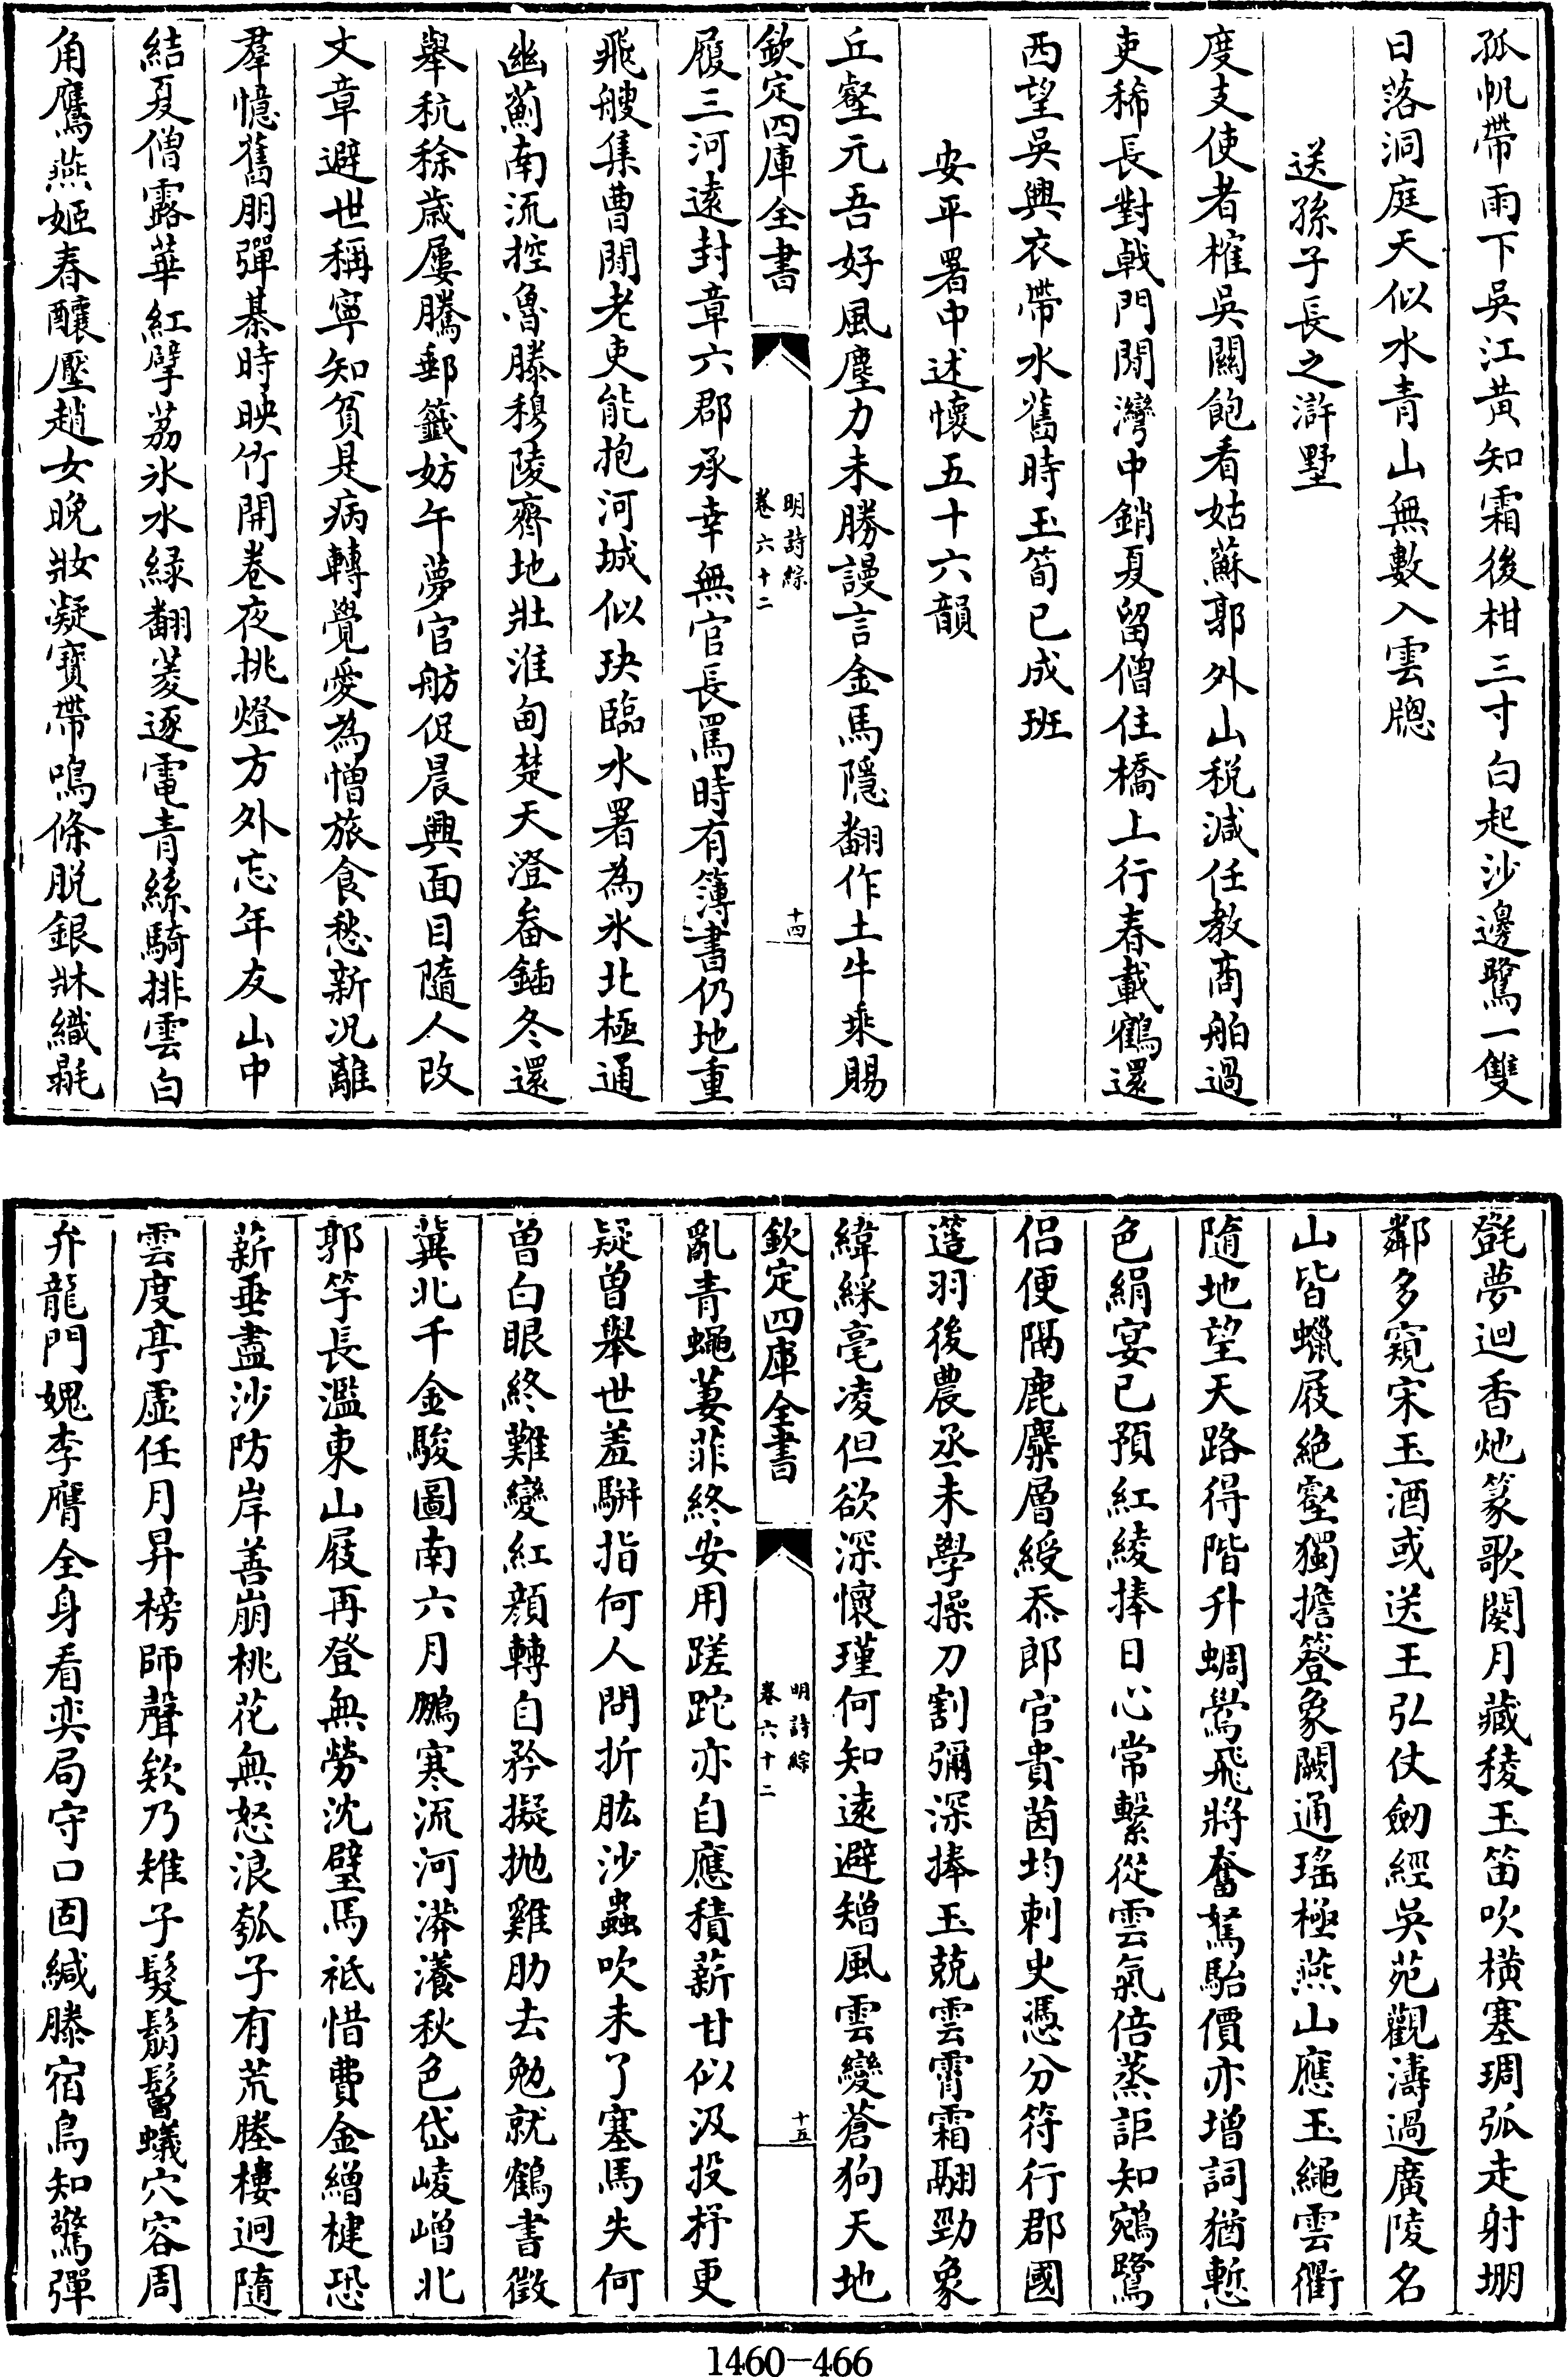 孤帆帶雨下吳江黃知霜後柑三寸白起沙邊鷺一雙
日落洞庭天似水青山無數入雲牕
送孫子長之滸墅
度支使者榷吳關飽看姑蘇郭外山税減任教商舶過
吏稀長對戟門閒灣中銷夏留僧住橋上行春載鶴還
西望吳興衣帶水舊時玉筍已成班
安平署中述懷五十六韻
丘壑元吾好風塵力未勝謾言金馬隱翻作土牛乘賜
欽定四庫全書
明詩綜
卷六十二
十四
履三河遠封章六郡承幸無官長罵時有簿書仍地重
飛艘集曹閒老吏能抱河城似玦臨水署為氷北極通
幽薊南流控魯滕穆陵齊地壯淮甸楚天澄畚鍤冬還
舉秔稌歲屢騰郵籤妨午夢官舫促晨興面目隨人改
文章避世稱寧知貧是病轉覺愛為憎旅食愁新況離
羣憶舊朋彈棊時映竹開卷夜挑燈方外忘年友山中
結夏僧露華紅擘荔氷水緑翻菱逐電青絲騎排雲白
角鷹燕姬春釀壓趙女晚妝凝寶帶鳴條脱銀牀織毾
㲪夢迴香灺篆歌闋月藏稜玉笛吹横塞琱弧走射堋
鄰多窺宋玉酒或送王弘仗劒經吳苑觀濤過廣陵名
山皆蠟屐絶壑獨擔簦象闕通瑤極燕山應玉繩雲衢
隨地望天路得階升蜩鷽飛將奮駑駘價亦增詞猶慙
色絹宴已預紅綾捧日心常繫從雲氣倍蒸詎知鵷鷺
侣便隔鹿麋層綬忝郎官貴茵均刺史憑分符行郡國
簉羽後農丞未學操刀割彌深捧玉兢雲霄霜翮勁象
緯綵毫凌但欲深懷瑾何知遠避矰風雲變蒼狗天地
欽定四庫全書
明詩綜
卷六十二
十五
亂青蠅萋菲終安用蹉跎亦自應積薪甘似汲投杼更
疑曾舉世羞駢指何人問折肱沙蟲吹未了塞馬失何
曾白眼終難變紅顔轉自矜擬抛雞肋去勉就鶴書徵
冀北千金駿圖南六月鵬寒流河漭瀁秋色岱崚嶒北
郭竽長濫東山屐再登無勞沈璧馬祗惜費金繒楗恐
薪垂盡沙防岸善崩桃花無怒浪瓠子有荒塍樓迥隨
雲度亭虚任月昇榜師聲欸乃雉子髮鬅鬙蟻穴容周
弁龍門媿李膺全身看奕局守口固緘縢宿鳥知驚彈
1460-466